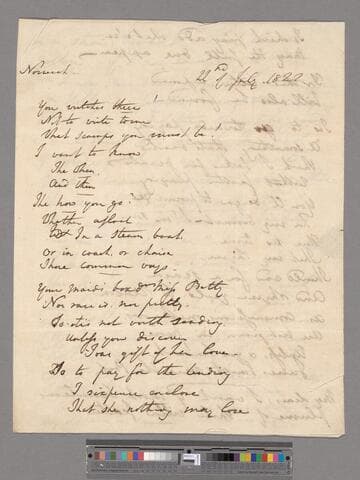 Norwich
22nd of July 1822
You wretches there!
Not to write town
What scamps you must be!
I want to know
The When
And then
The how you go!
Whether afloat
In a steam boat
Or in coach, or chaise
Those common ways.
Your maids box Miss Betty
Nor nice is, nor pretty
So 'tis not worth sending
Unless you discover
I one gift of her lover
So to pay for the lending
I sixpence enclose
That she nothing may lose